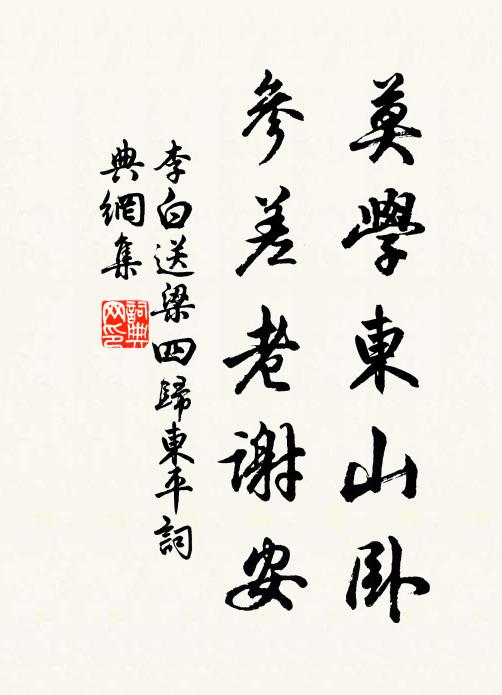 莫學東山卧
參差老謝安
李白送梁四歸東平詞
典網集
詞典
网印